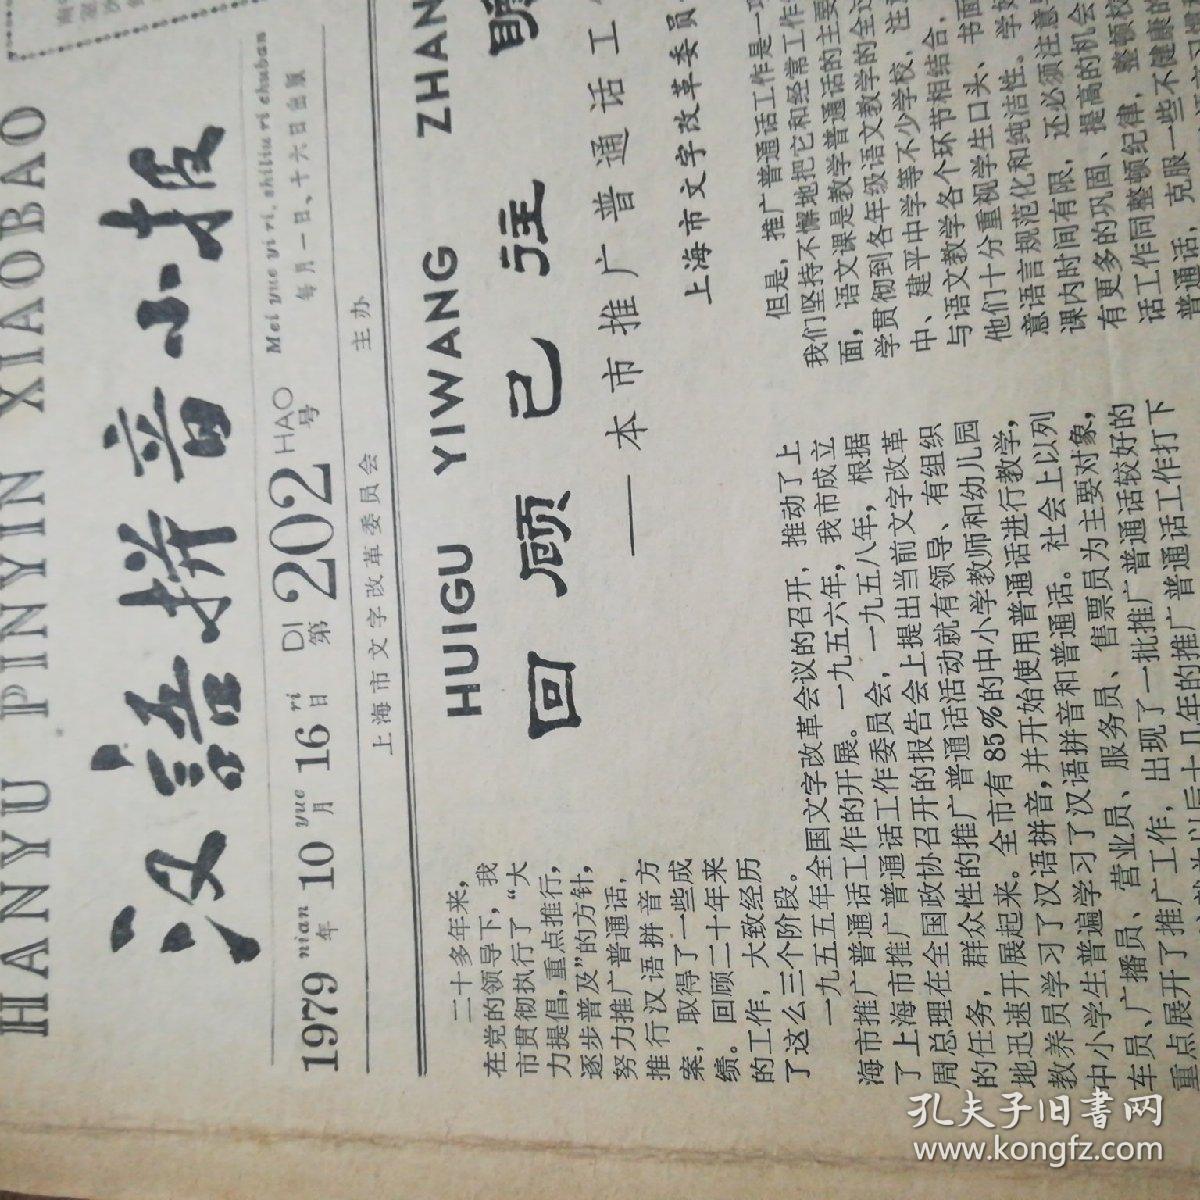 HANYU PINYIN XIAOBAO
汉语拼音小报
1979 nian 10 yue 16 ri DI 202 HAO Mei yue yi ri, shiliu ri chuban
年 月 日 第 号 每月一日、十六日出版
上海市文字改革委员会 主办
HUIGU YIWANG ZHAN
回顾已往
——本市推广普通话工
上海市文字改革委员
二十多年来,
在党的领导下,我
市贯彻执行了“大
力提倡,重点推行,
逐步普及”的方针,
努力推广普通话,
推行汉语拼音方
案,取得了一些成
绩。回顾二十年来
的工作,大致经历
了这么三个阶段。
一九五五年全国文字改革会议的召开,推动了上
海市推广普通话工作的开展。一九五六年,我市成立
了上海市推广普通话工作委员会,一九五八年,根据
周总理在全国政协召开的报告会上提出当前文字改革
的任务,群众性的推广普通话活动就有领导、有组织
地迅速开展起来。全市有85%的中小学教师和幼儿园
教养员学习了汉语拼音,并开始使用普通话进行教学,
中小学生普遍学习了汉语拼音和普通话。社会上以列
车员、广播员、营业员、服务员、售票员为主要对象,
重点展开了推广工作,出现了一批推广普通话较好的
以后十几年的推广普通话工作打下
但是,推广普通话工作是一项
我们坚持不懈地把它和经常工作
面,语文课是教学普通话的主要
学贯彻到各年级语文教学的全过
中、建平中学等不少学校,注意
与语文教学各个环节相结合,
他们十分重视学生口头、书面
意语言规范化和纯洁性。学好
课内时间有限,还必须注意
有更多的巩固、提高的机会
话工作同整顿纪律,整顿校
普通话,克服一些不健康的
孔夫子旧书网
www.kongfz.com